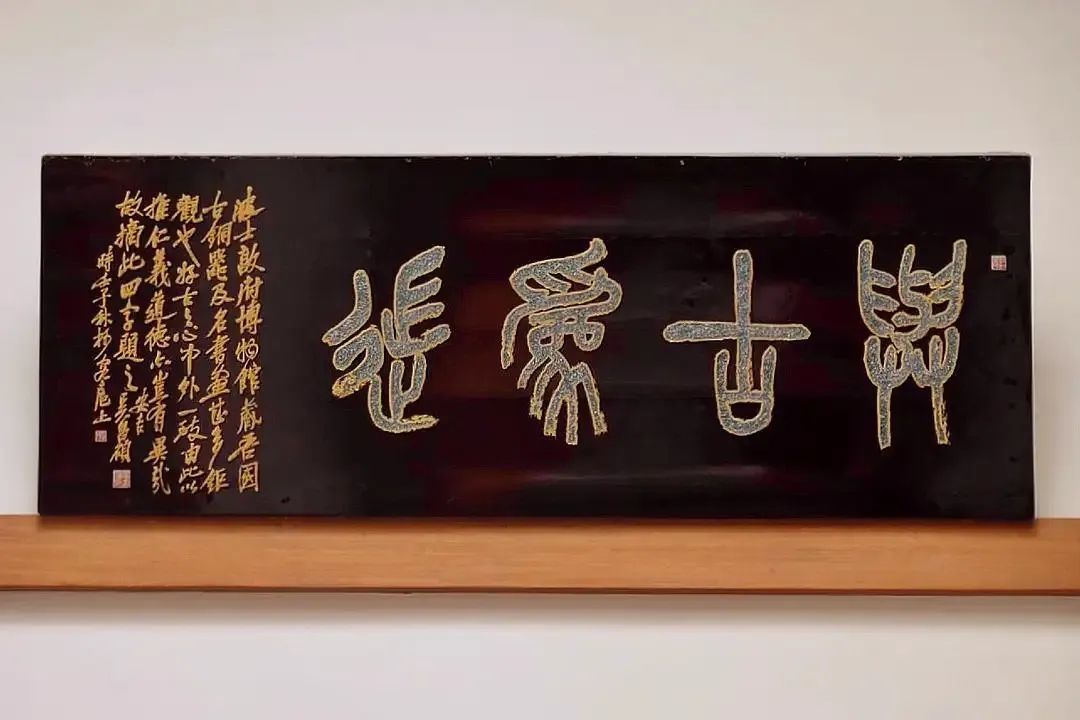 與古爲徒
波士敦府博物館藏吾國
古銅器及名書畫甚多鉅
觀也好古之心中外一致由此以
推仁義道德亦豈有異哉
故摘此四字題之安吉吳昌碩
時壬子秋杪客扈上